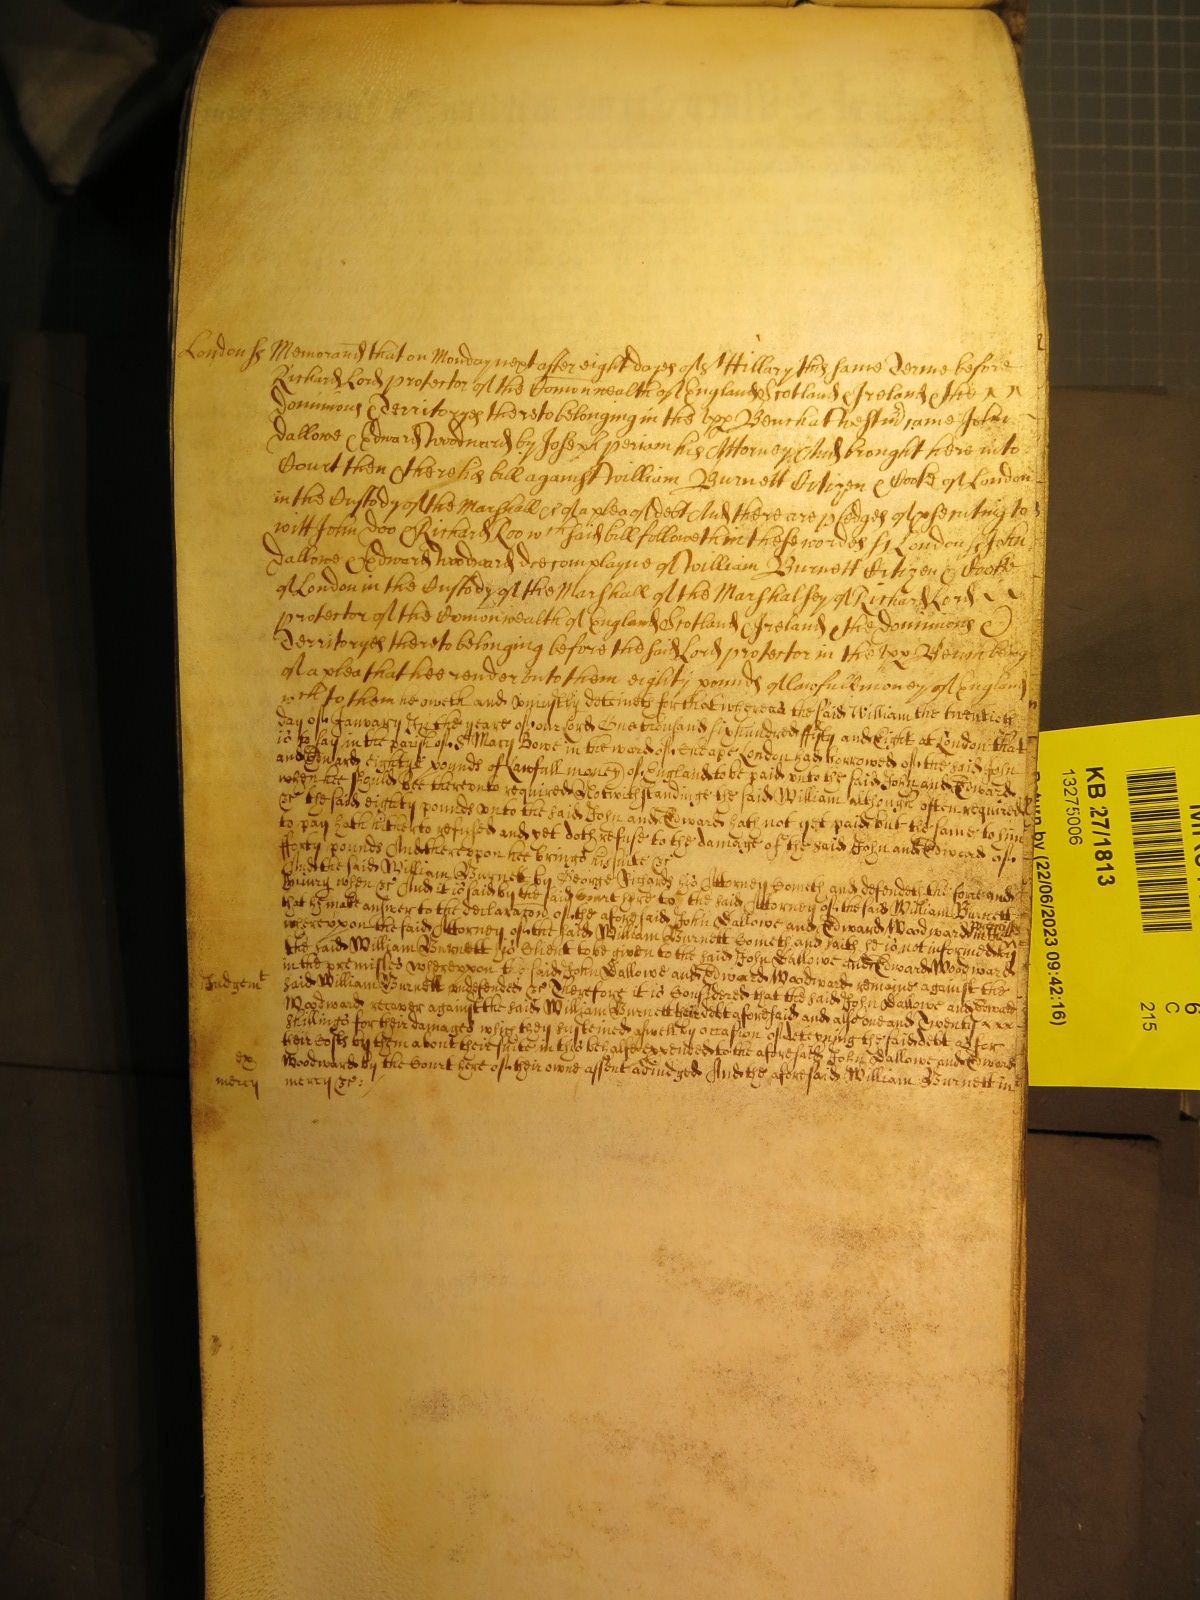 London ss Memorand that on Monday next after eight dayes of St Hillary this same Terme before
Richard Lord protector of the Comonwealth of England Scotland & Ireland & the
dominions & Territoryes thereto belonging in the vpp Bench at Westmr came John
dallowe & Edward Woodward by Joseph periam his Attorney And brought here into
Court then & there his bill against William Burnett Citizen & Cooke of London
in the Custody of the Marshall &c of a plea of debt And there are pledges of psecuting to
witt John Doo & Richard Roo wch said bill followeth in these wordes ss London ss John
dallowe & Edward Woodward doe complayne of William Burnett Citizen & Cooke
of London in the Custody of the Marshall of the Marshalsey of Richard Lord
protector of the Comonwealth of England Scotland & Ireland & the dominions &
Territoryes thereto belonging before the said Lord protector in the vpp Bench being
of a plea that hee render vnto them eighty pounds of lawfull money of England
wch to them he oweth and vniustly deteines for that whereas the said William the twentieth
day of January In the yeare of our lord One thousand six hundred ffifty and Eight at London that
is to say in the parish of St Mary Bowe in the ward of Cheape London had borrowed of the said John
and Edward eightye pounds of Lawfull money of England to be paid vnto the said John and Edward
when hee should bee therevnto required Notwithstandinge the said William although often required
&c the said eighty pounds vnto the said John and Edward hath not yet paid but the same to him
to pay hath hitherto refused and yet doth refuse to the damage of the said John and Edward of
fforty pounds And therevpon hee brings his suite &c
And the said William Burnett by George Richards his Attorney Cometh and defendeth the force and
Iniury when &c And it is said by the said Court here to the said Attorney of the said William Burnett
that he make answer to the declaracon of the aforesaid John Dallowe and Edward Woodward
wherevpon the said Attorney of the said William Burnett Cometh and saith he is not informed by
the said William Burnett is Client to be given to the said John Dallowe and Edward Woodward
in the premisses wherevpon the said John Dallowe and Edward Woodward remaine against the
Iudgemt said William Burnett vndefended &c Therefore it is Considered that the said John Dallowe and Edward
Woodward recover against the said William Burnett their debt aforesaid and alsoe one and Twenty
shillings for their damages which they susteined aswell by occasion of deteyning the said debt as for
their Costs by them about their suite in this behalfe expended to the aforesaid John Dallowe and Edward
ex Woodward by the Court here of their owne assent adiudged And the aforesaid William Burnett in
mercy mercy &c
KB 27/1813
13275006
(22/06/2023 09:42:16)
C
215